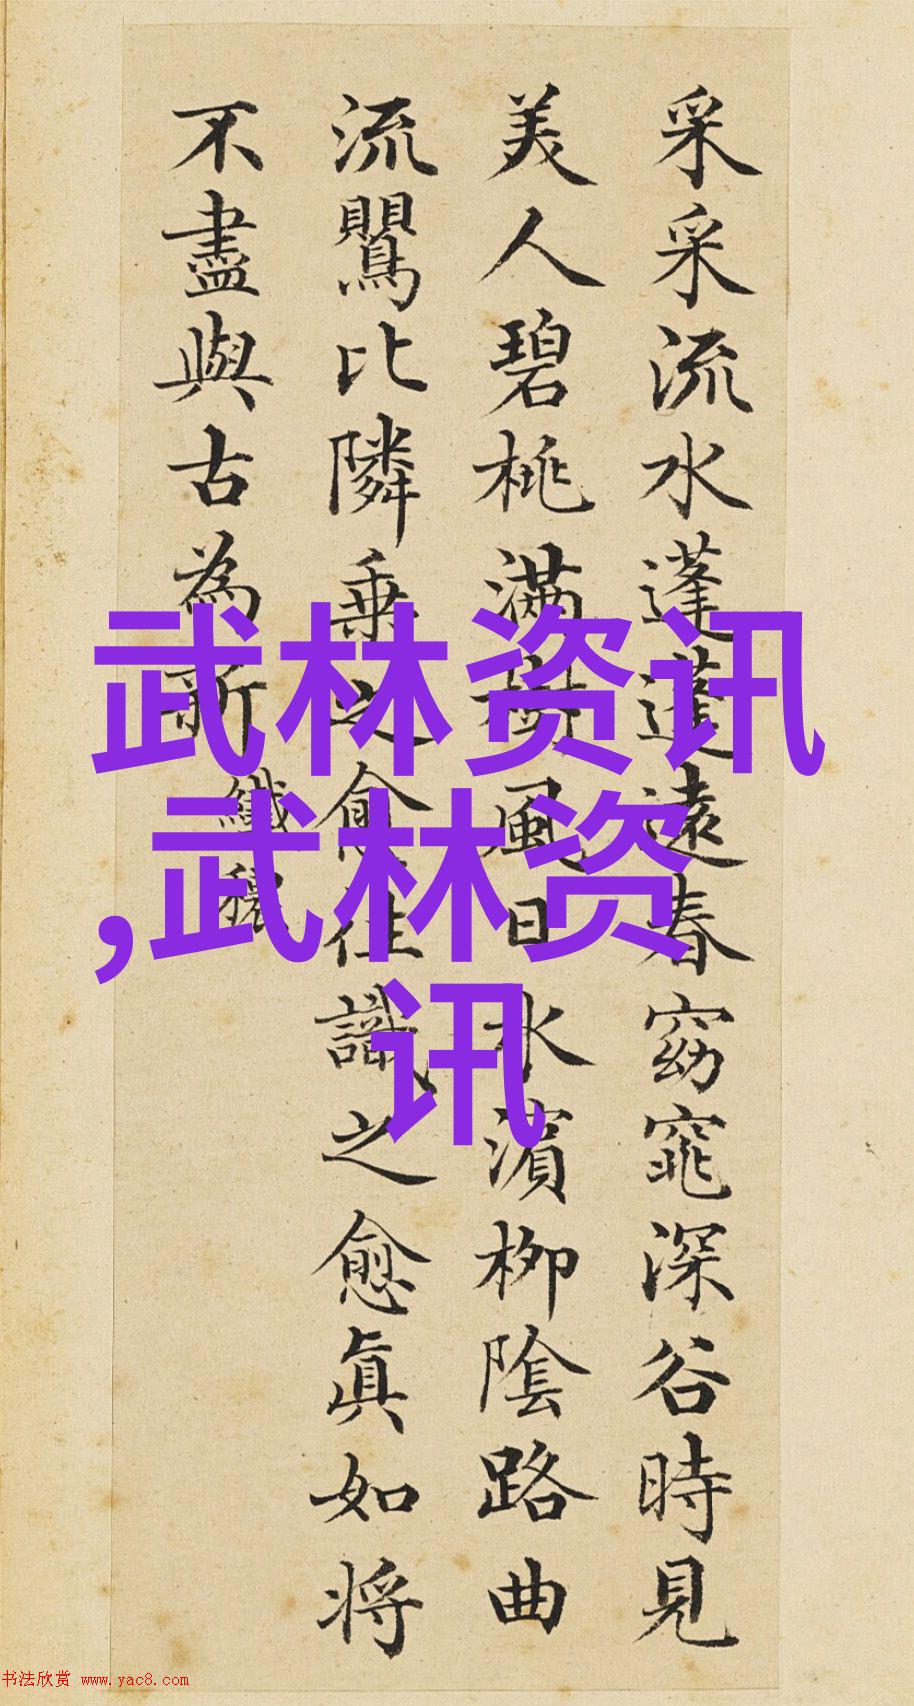 采采流水蓬蓬遠春窈窕深谷時見
美人碧桃滿樹風日水濱柳陰路曲
流鸎比隣乗之愈往識之愈眞如将
不盡與古為新
纖穠
武林资讯
,武林资
讯
书法欣赏 www.yac8.com